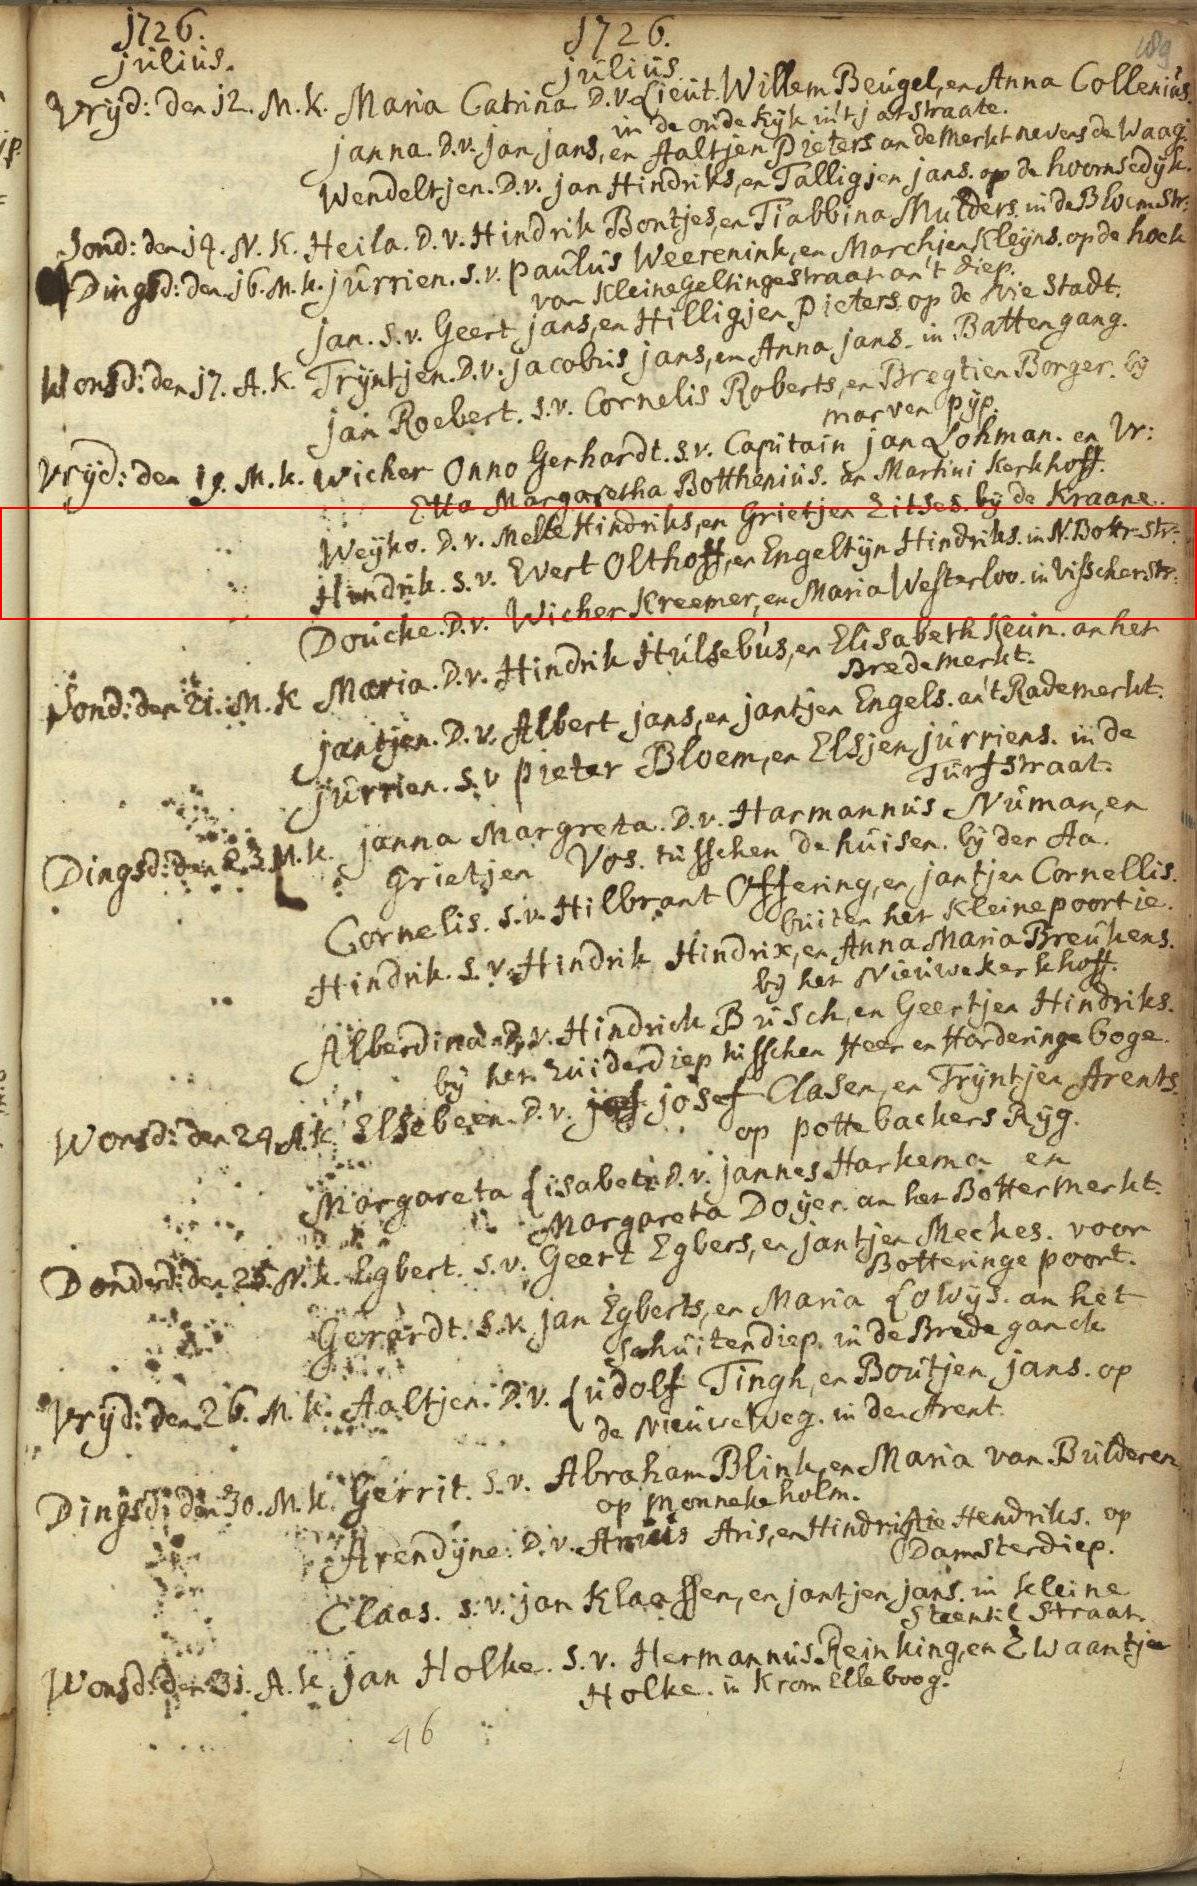 1726. 1726. 189
julius. julius.
Vrijd: den 12. M. K. Maria Catrina D.v. Lieut. Willem Beugel, en Anna Collenius.
in de oude Kijk in't jatstraate.
janna. D.v. jan jans, en Aaltjen Pieters an de Merkt nevens de Waag:
Wendeltjen. D.v. jan Hindriks, en Talligjen jans. op de hoornsedijk.
Sond: den 14. N. K. Heila. D.v. Hindrik Bontjes, en Tiabbina Mulders. in de Bloemstr:
Dingsd: den 16. M. k. jurrien. s.v. paulus Weerenink, en Marchjen Kleijns. op de hoek
van Kleine Geltingestraat an't diep.
jan. s.v. Geert jans, en Hilligjen Pieters. op de Vrie Stadt.
Wonsd: den 17. A. K. Trijntjen. D.v. jacobus jans, en Anna jans. in Battengang.
jan Roebert. s.v. Cornelis Roberts, en Bregtien Borger. bij
marven pijp.
Vrijd: den 19. M. k. Wicher Onno Gerhardt. s.v. Capitain jan Lohman. en Vr:
Etta Margaretha Botthenius. an Martini Kerkhoff.
Weijko. D.v. Melle Hindriks, en Grietjen Eitses. bij de Kraane.
Hindrik. s.v. Evert Olthoff, en Engeltijn Hindriks. in N. Bottr-str:
Doucke. D.v. Wicher Kreemer, en Maria Westerloo. in Visscherstr:
Sond: den 21. M. K Maria. D.v. Hindrik Hulsebus, en Elisabeth Keun. an het
Bredemerkt.
jantjen. D.v. Albert jans, en jantjen Engels. an't Rademerkt.
jurrien. s.v pieter Bloem, en Elsjen jurriens. in de
Turfstraat.
Dingsd: den 23. M. k. janna Margreta. D.v. Harmannus Numan, en
Grietjen Vos. tusschen de huisen. bij der Aa.
Cornelis. s.v. Hilbrant Offering, en jantjen Cornellis.
buiten het Kleinepoortie.
Hindrik. s.v. Hindrik Hindrix, en Anna Maria Breukens.
bij het Nieuwekerkhoff.
Alberdina D.v. Hindrick Busch, en Geertjen Hindriks.
bij het Zuiderdiep tusschen Heer en Harderinge boge.
Wonsd: den 24. A. k. Elsebeen. D.v. josef Clasen, en Trijntjen Arents.
op pottebackers Rijg.
Margareta Lisabet. D.v. jannes Harkema en
Margareta Doijer. an het Bottermerkt.
Donderd: den 25. N. k. Egbert. s.v. Geert Egbers, en jantjen Meckes. voor
Botteringe poort.
Gerardt. s.v. jan Egberts, en Maria Lowijs. an het
Schuitendiep. in de Brede ganck
Vrijd: den 26. M. k. Aaltjen. D.v. Ludolf Tingh, en Boutjen jans. op
de Nieuweweg. in den Arent.
Dingsd: den 30. M. k. Gerrit. s.v. Abraham Blink, en Maria van Bulderen
op Monnekeholm.
Arendijne. D.v. Aris, en Hindriktie Hendriks. op
Damsterdiep.
Claas. s.v. jan Klaassen, en jantjen jans. in kleine
Steentil Straat.
Wonsd: den 31. A. k. jan Holke. s.v. Hermannus Reinking, en Zwaantje
Holke. in Krom Elleboog.
46